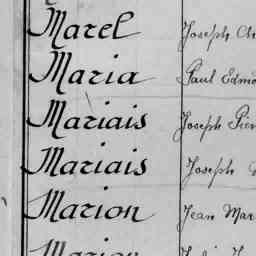 Marel Joseph
Maria Paul
Mariais Joseph
Mariais Joseph
Marion Jean
Marion